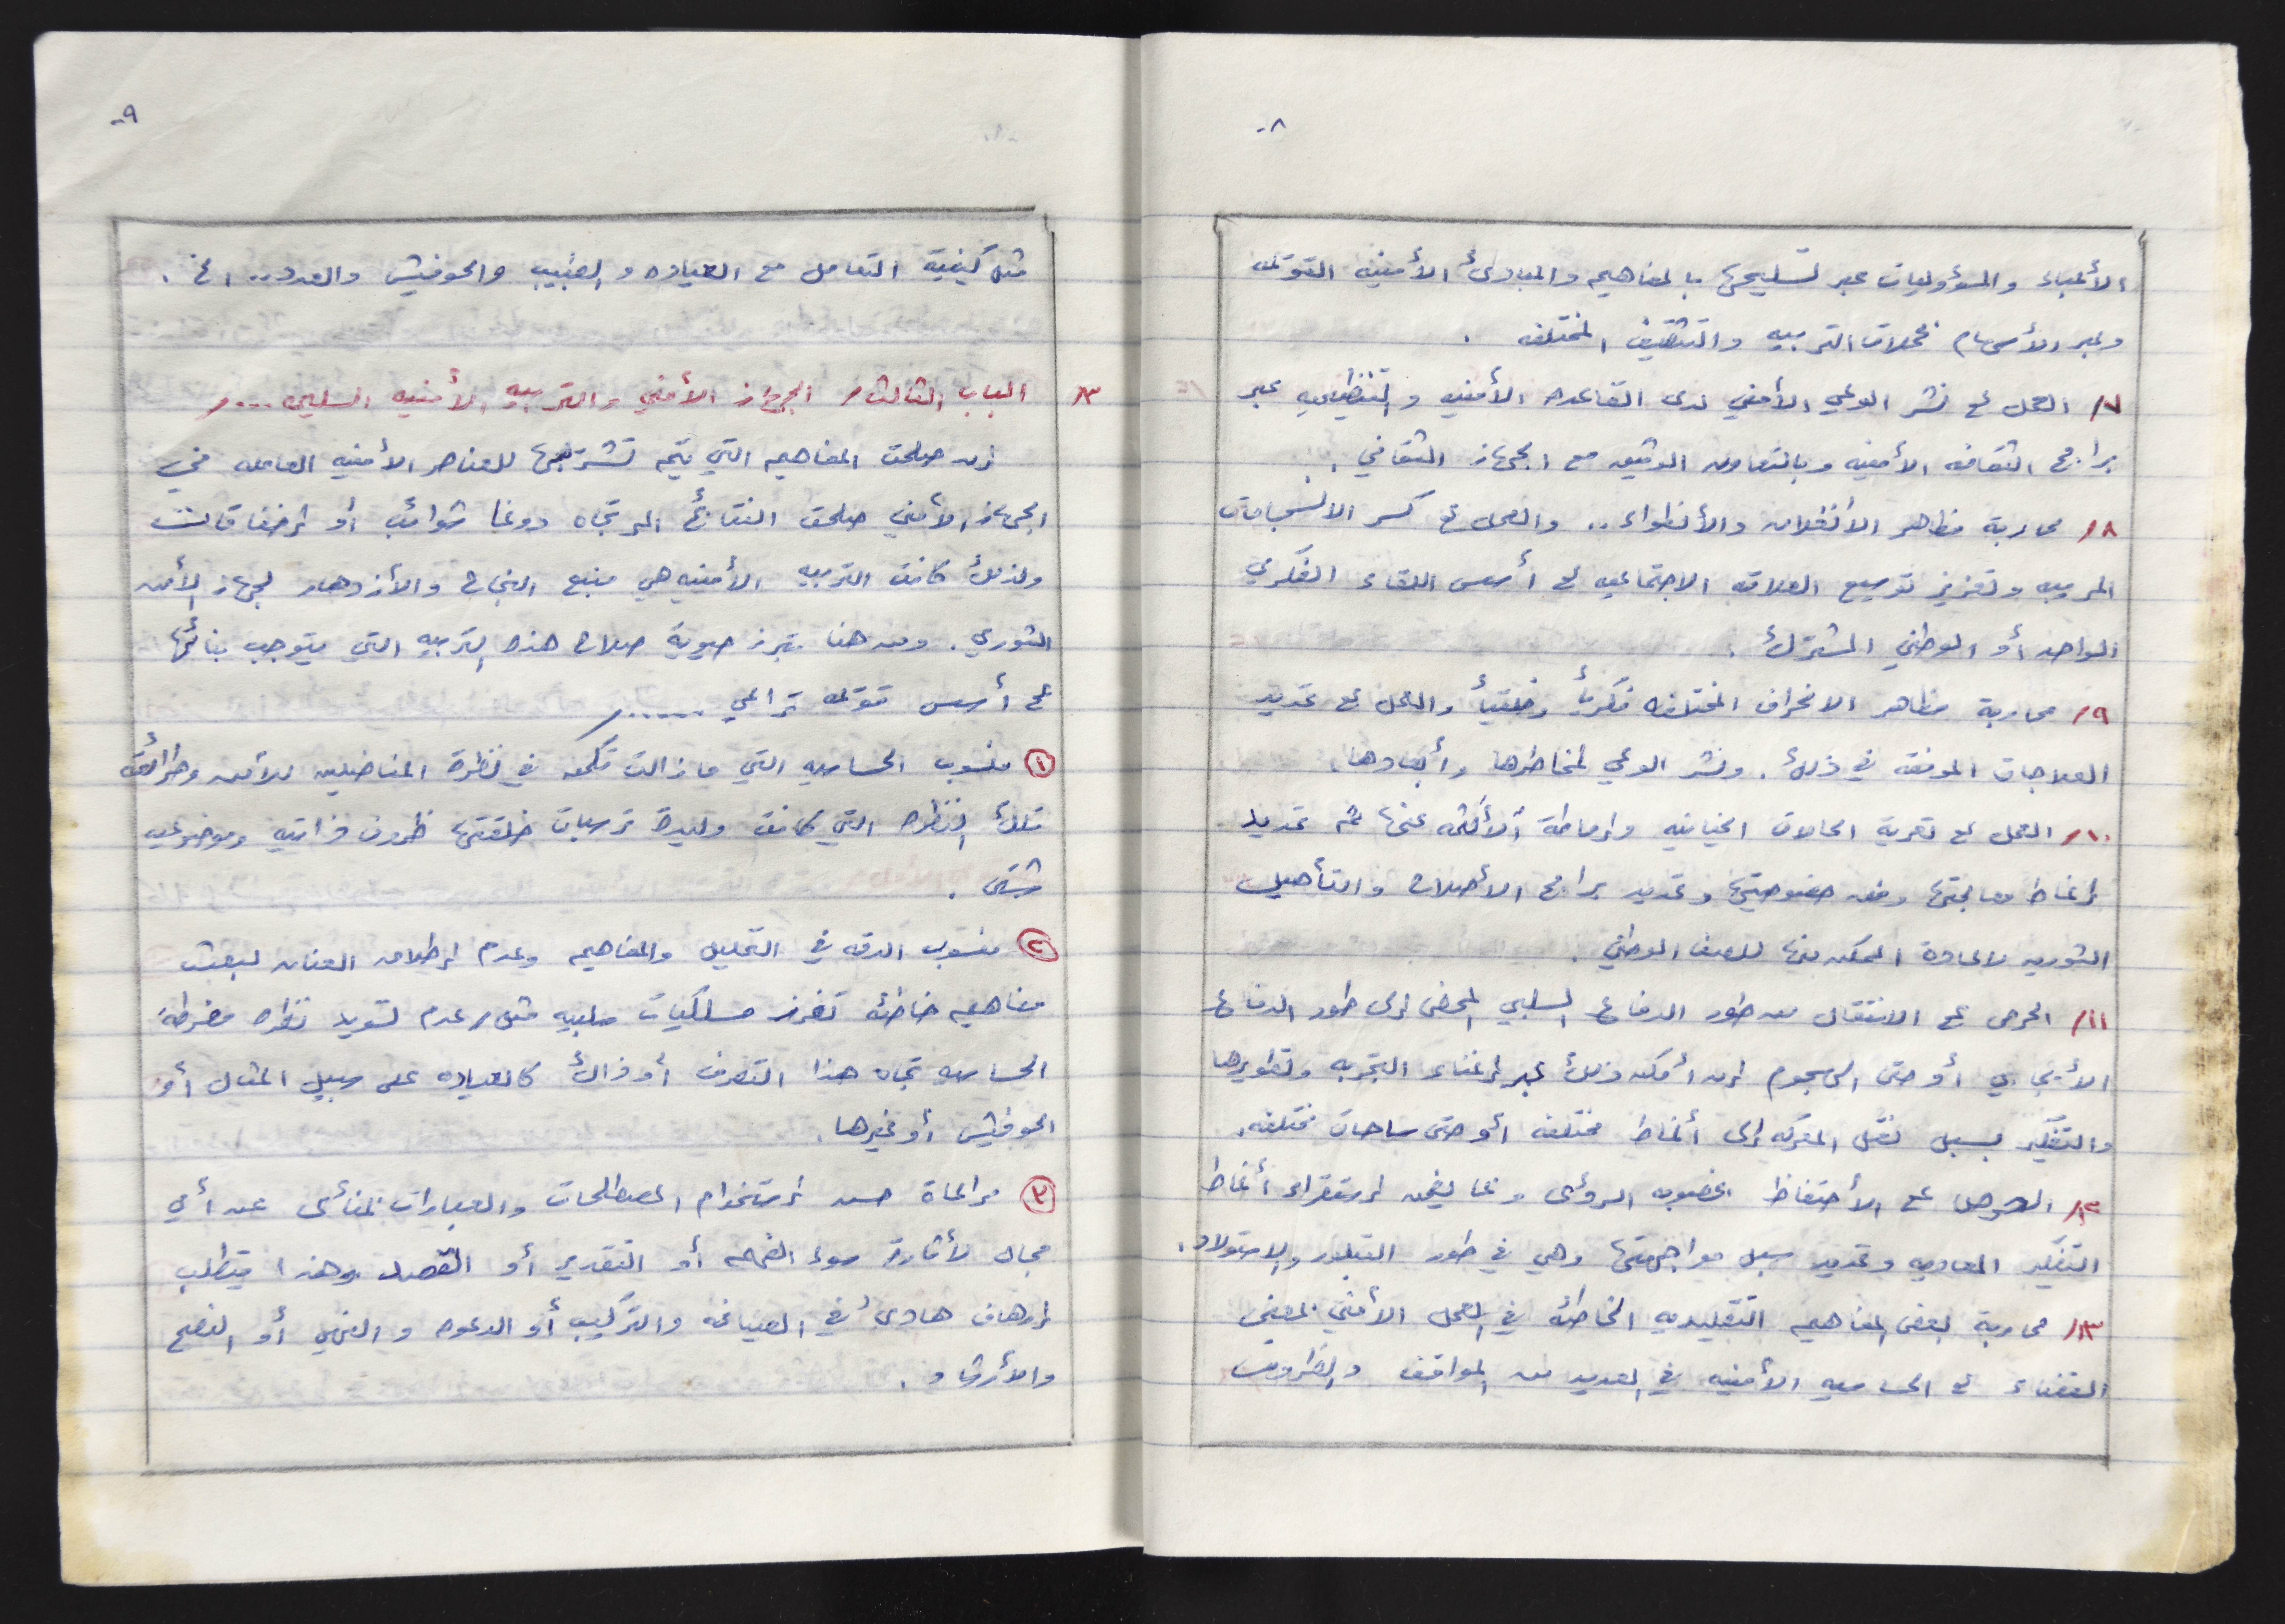 ٨-
الأعباء والمسؤوليات عبر تسليحها بالمفاهيم والمبادئ الأمنيه القوّيمه
وعبر الأسهام بحملات التربيه والتثقيف المختلفه .
٧/ العمل ع نشر الوعي الأمني لدى القاعده الأمنيه والتنظيميه عبر
برامج الثقافه الأمنيه وبالتعاون الوثيق مع الجهاز الثقافي .
٨/ محاربة مظاهر الانفلات والأنطواء .. والعمل ع كسر الانسجامات
المريبه وتعزيز توسيع العلاقه الاجتماعيه ع أسس اللقاء الفكري
الواحد أو الوطني المشترك .
٩/ محاربة مظاهر الانحراف المختلفه فكرياً وخلقياً والعمل ع تحديد
العلاجات الموفقه في ذلك . ونشر الوعي لمخاطرها وأبعادها .
١٠/ العمل ع تعرية الحالات الخيانيه وإماطة الأقنعه عنها ثم تحديد
إنماط معالجتها وفق خصوصيتها وتحديد برامج الأصلاح والتأهيل
الثوريه لاعادة الممكن منها للصف الوطني .
١١/ الحرص ع الانتقال من طور الدفاع السلبي المحض إلى طور الدفاع
الأيجابي أو حتى الهجوم إن أمكن ذلك عبر إغناء التجربه وتطويرها
والتفكير بسبل نقل المعركه إلى أنماط مختلفه أو حتى ساحات مختلفه .
١٢/ الحرص ع الأحتفاظ بخصوبه الرؤى وبما يضمن إستقراء أنماط
التفكير المعاديه وتحديد سبل مواجهتها وهي في طور التبلور والاستيلاد .
١٣/ محاربة بعض المفاهيم التقليديه الخاطئه في العمل الأمني بمعنى
القضاء ع الحساسيه الأمنيه في العديد من المواقف والظروف
٩-
مثل كيفية التعامل مع العياده والطبيب والحوفيش والعدد .. الخ .
٣/ الباب الثالث / الجهاز الأمني والتربيه الأمنيه السليمه .... /
إن صلحت المفاهيم التي يتم تشرّبها للعناصر الأمنيه العامله في
الجهاز الأمني صلحت النتائج المرتجاه دونما شوائب أو إخفاقات
ولذلك كانت التربيه الأمنيه هي منبع النجاح والأزدهار لجهاز الأمن
الثوري . ومن هنا تبرز حيوية صلاح هذه التربيه التي يتوجب بنائها
ع أسس قوّيمه تراعي ...... /
① منسوب الحساسيه التي ما زالت تكمن في نظرة المناضلين للأمن وطرائقه
تلك النظره التي كانت وليدة ترسبات خلقتها ظروف ذاتيه وموضوعيه
شتى .
② منسوب الدقه في التحليل والمفاهيم وعدم إطلاق العنان لبعث
مفاهيم خاطئه تفرز مسلكيات سلبيه مثل / عدم تسويد نظره مفرطة
الحساسيه تجاه هذا التصرف أو ذاك كالعياده على سبيل المثال أو
الحوفيش أو غيرها .
③ مراعاة حسن إستخدام المصطلحات والعبارات بمنأى عن أي
مجال لأثارة سوء الفهم أو التقدير أو القصد وهذا يتطلب
إرهاف هادئ في الصياغه والتركيب أو الدعوه والنهي أو النصح
والأرشاد .